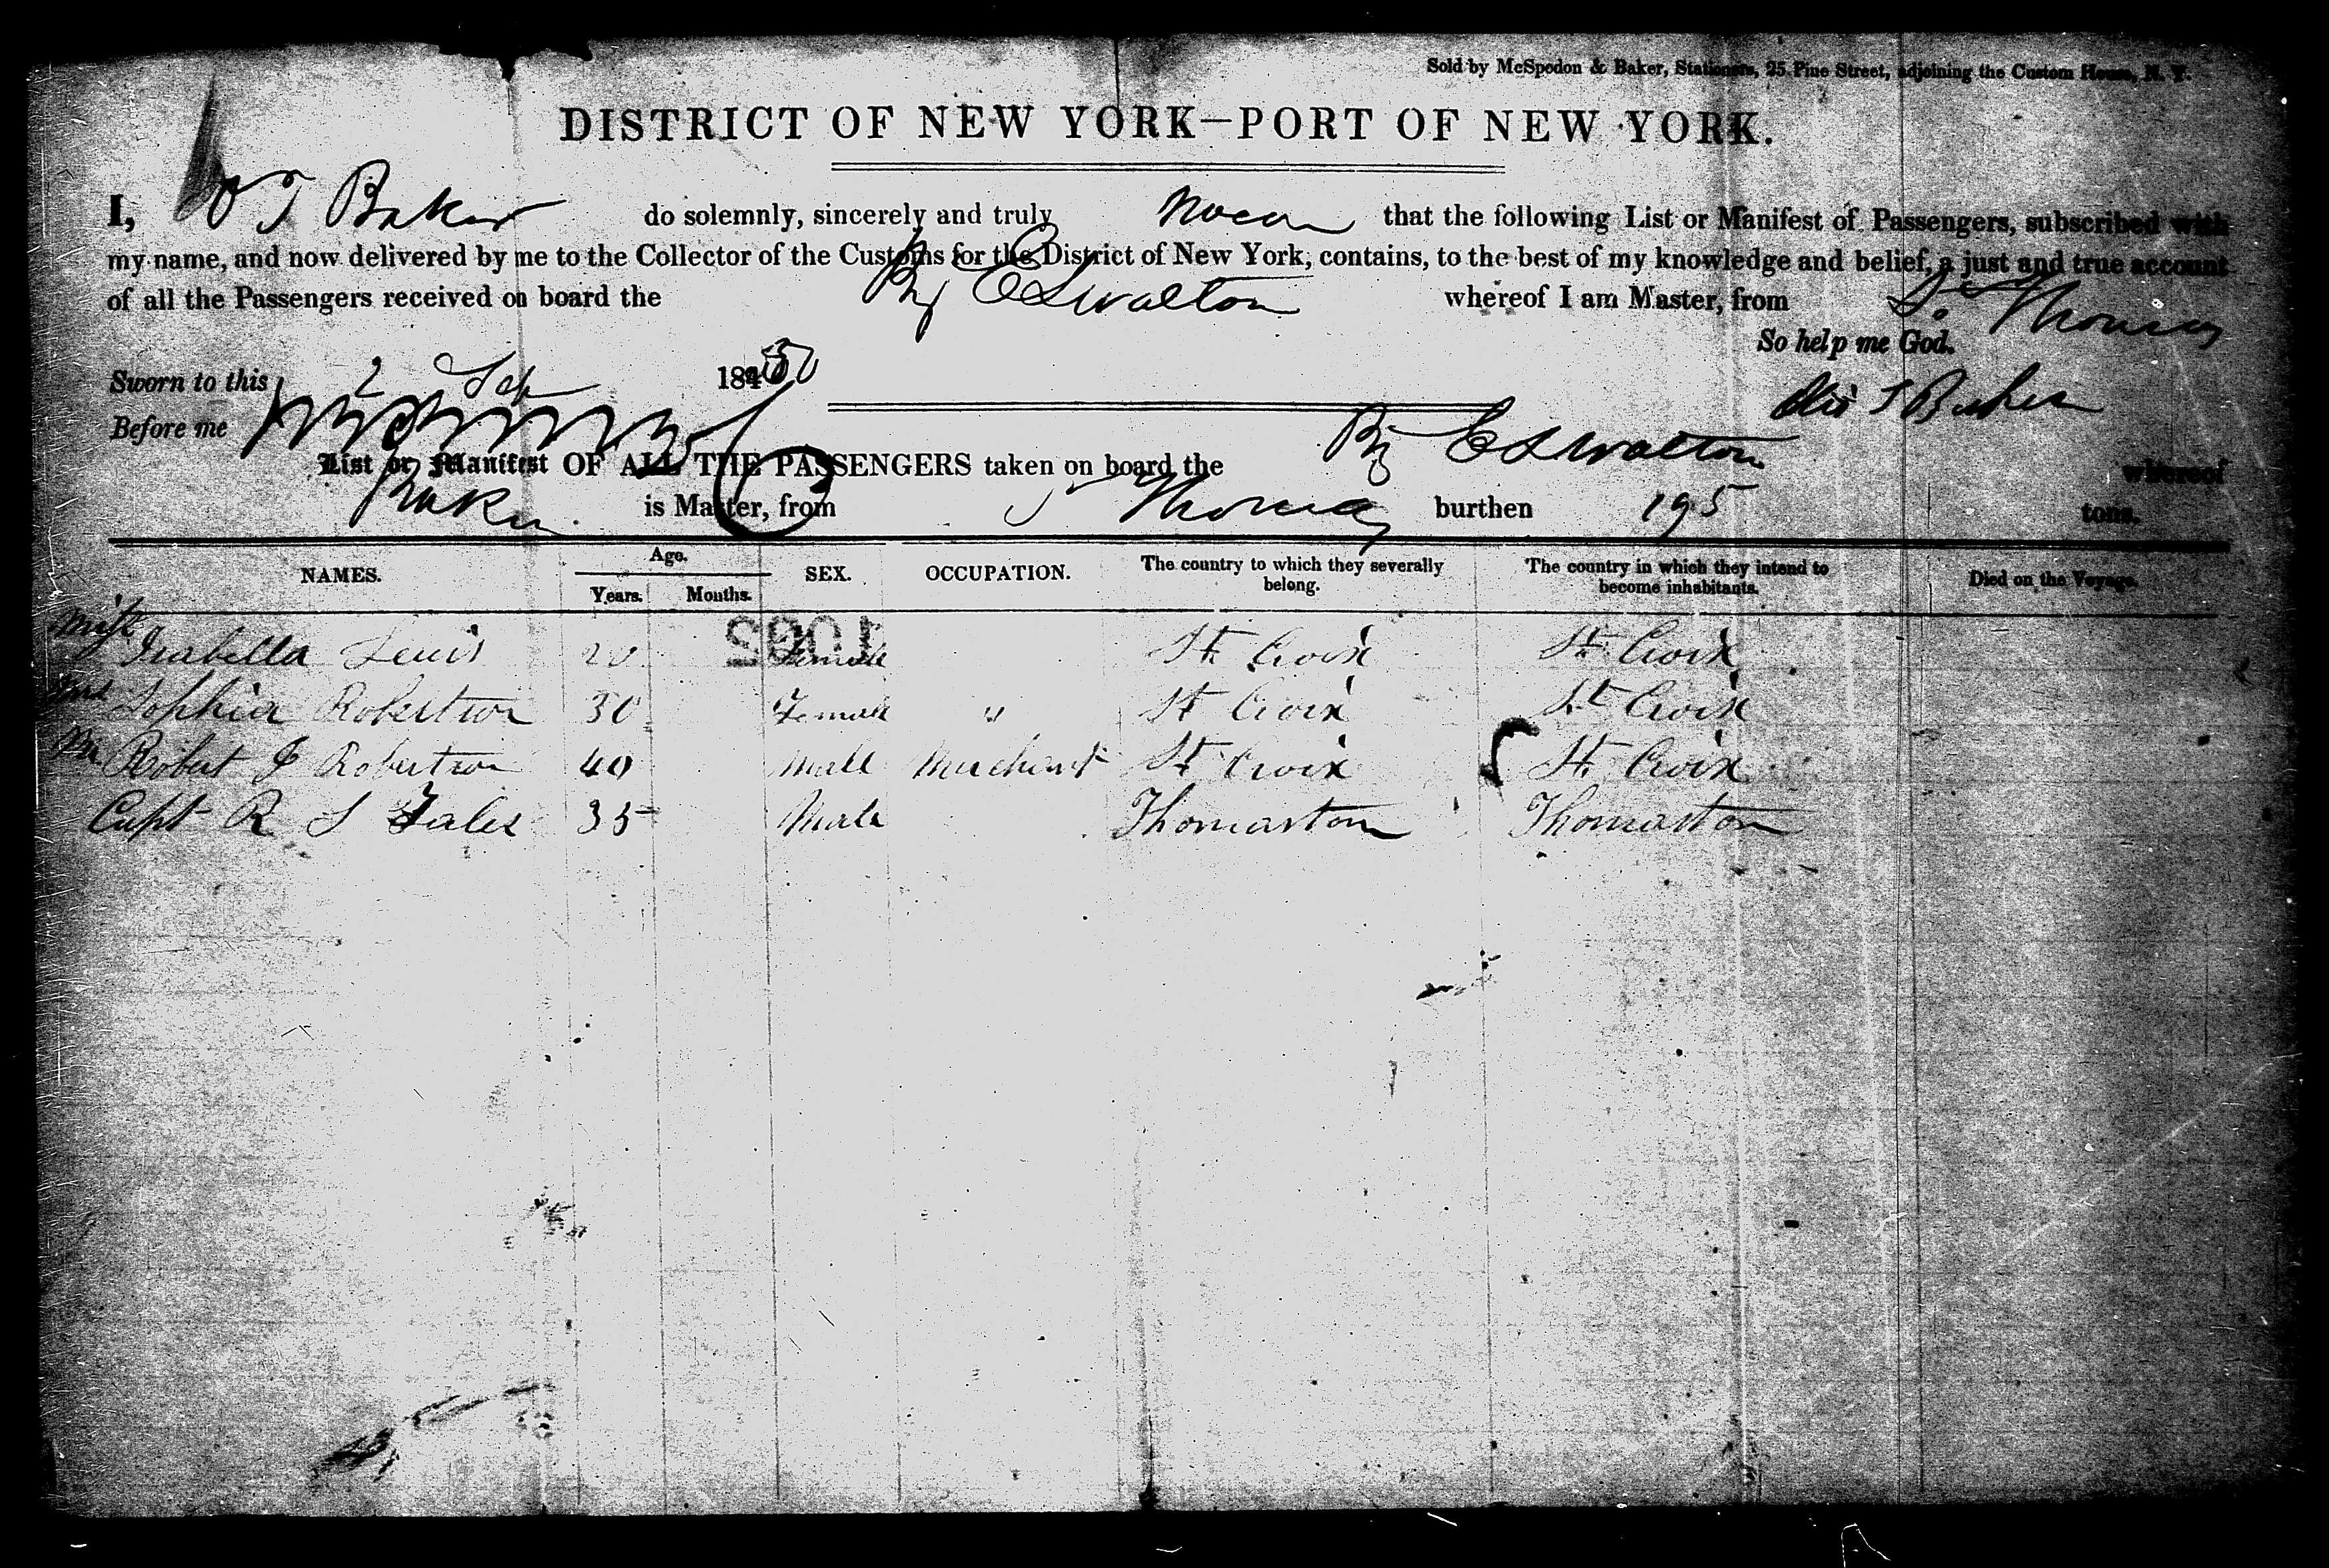 Sold by McSpedon & Baker, Stationers, 25 Pine Street, adjoining the Custom House, N. Y.
DISTRICT OF NEW YORK—PORT OF NEW YORK.
I, O T Baker do solemnly, sincerely and truly swear that the following List or Manifest of Passengers, subscribed with
my name, and now delivered by me to the Collector of the Customs for the District of New York, contains, to the best of my knowledge and belief, a just and true account
of all the Passengers received on board the Brig E S Walton whereof I am Master, from St Thomas
So help me God.
Sworn to this 2 Sep 1850
Before me
Otis T Baker
List or Manifest OF ALL THE PASSENGERS taken on board the Brig E S Walton whereof
Baker is Master, from St Thomas burthen 195 tons.
NAMES. Age. Years. Months. SEX. OCCUPATION. The country to which they severally belong. The country in which they intend to become inhabitants. Died on the Voyage.
1062
Miss Isabella Lewis 20 Female St Croix St Croix
Mrs Sophia Robertson 30 Female " St Croix St Croix
Mr Robert J Robertson 40 Male Merchant St Croix St Croix
Capt R S Fales 35 Male Thomaston Thomaston